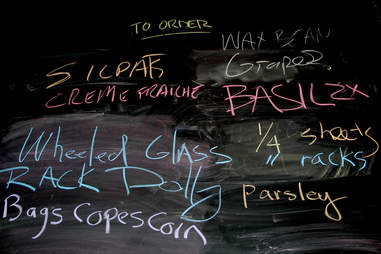 TO ORDER
WAX BEAN
Grapes
SILPAK
CREME FRAICHE
BASIL 2x
1/4 sheets
" racks
Wheeled Glass
RACK Dolly
parsley
Bags Copes Corn